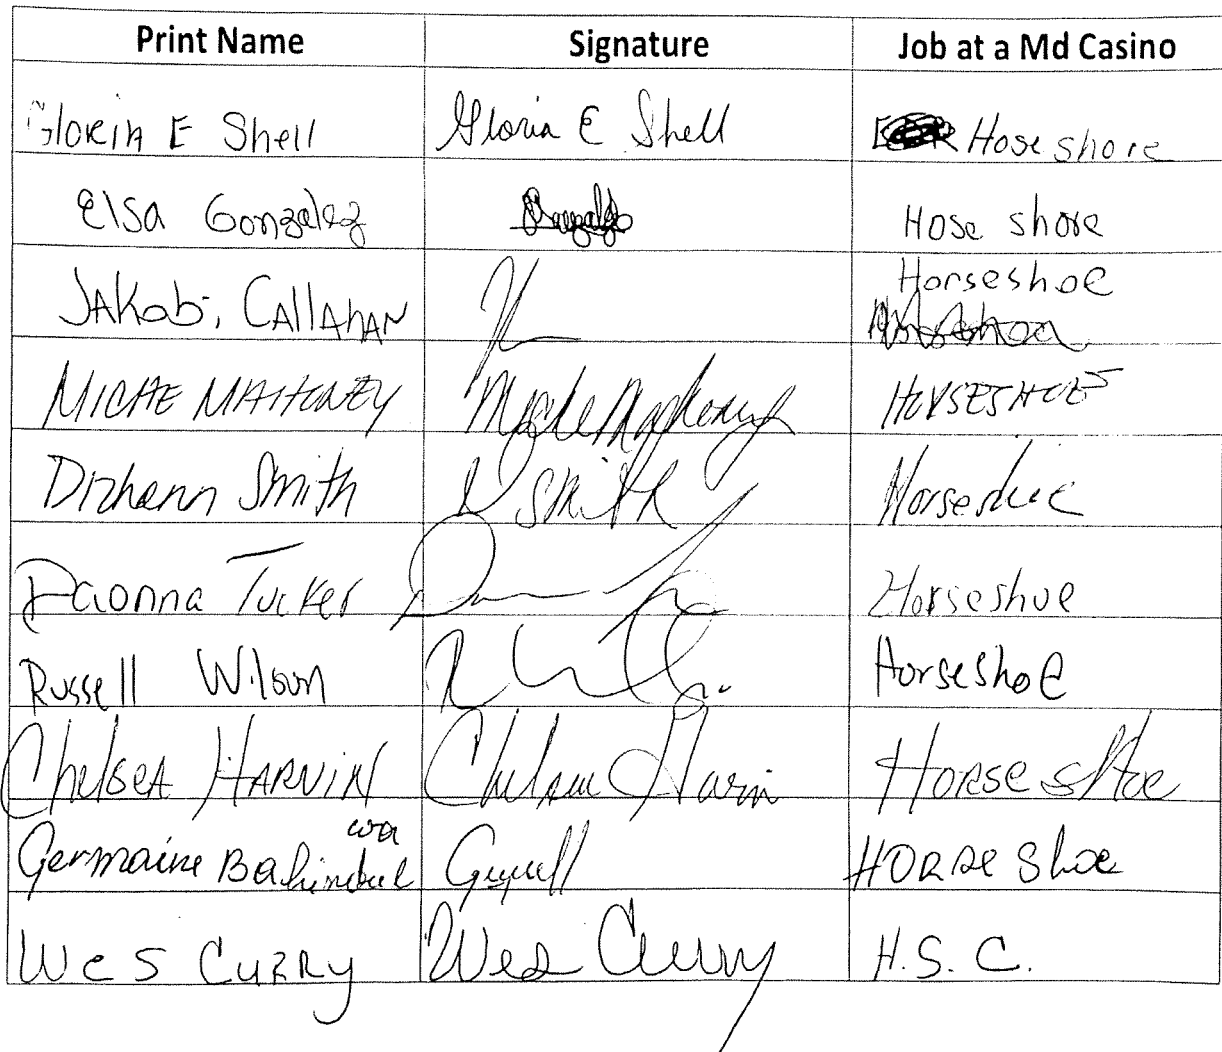 Print Name Signature Job at a Md Casino
Gloria E Shell Gloria E Shell Hose shore
Elsa Gonzalez Hose shore
Jakobi Callahan Horseshoe
Mahoney Horseshoe
Smith D Smith Horseshoe
Daonna Tucker Horseshoe
Russell Wilson Horseshoe
Chelsea Harvin Chelsea Harvin Horse shoe
Germaine Horse Shoe
Wes Curry Wes Curry H.S.C.